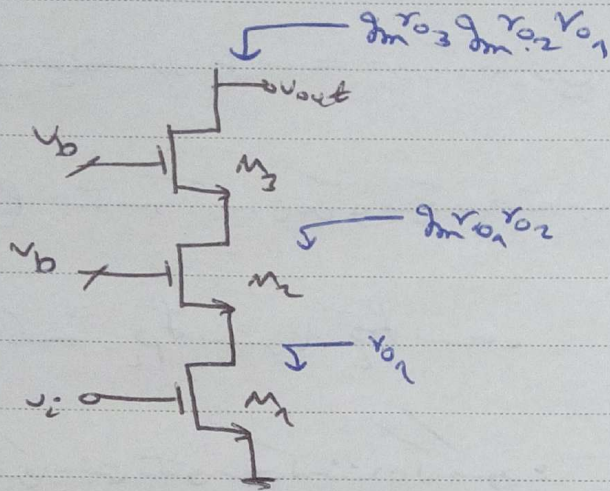 gm ro3 gm ro2 ro1
vout
Vb
M3
gm ro1 ro2
Vb
M2
ro1
vi
M1